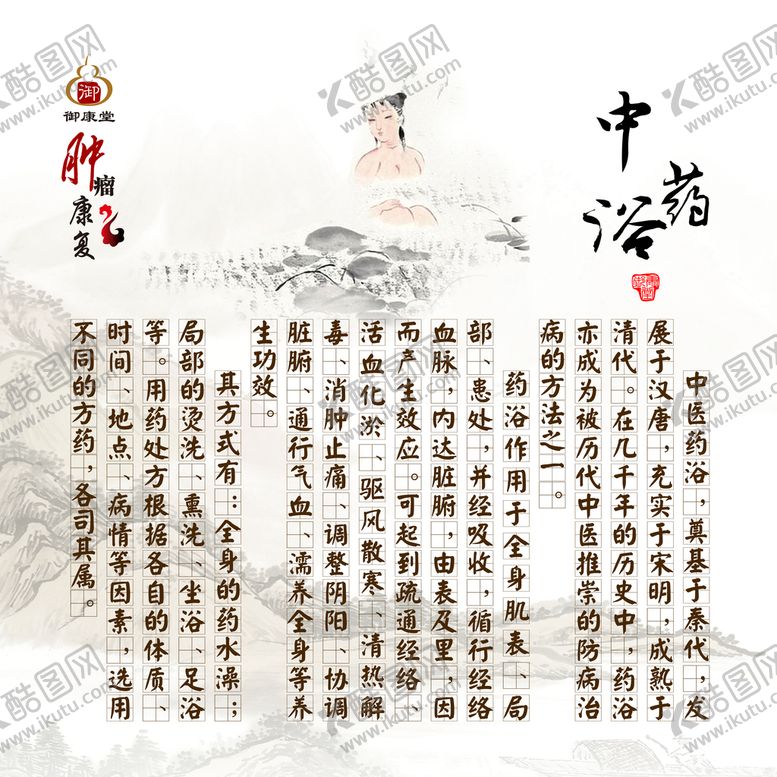 中药浴
中医药浴，奠基于秦代，发
展于汉唐，充实于宋明，成熟于
清代。在几千年的历史中，药浴
亦成为被历代中医推崇的防病治
病的方法之一。
药浴作用于全身肌表、局
部、患处，并经吸收，循行经络
血脉，内达脏腑，由表及里，因
而产生效应。可起到疏通经络、
活血化淤、驱风散寒、清热解
毒、消肿止痛、调整阴阳、协调
脏腑、通行气血、濡养全身等养
生功效。
其方式有：全身的药水澡；
局部的烫洗、熏洗、坐浴、足浴
等。用药处方根据各自的体质、
时间、地点、病情等因素，选用
不同的方药，各司其属。
御
御康堂
肿瘤康复
酷图网
www.ikutu.com